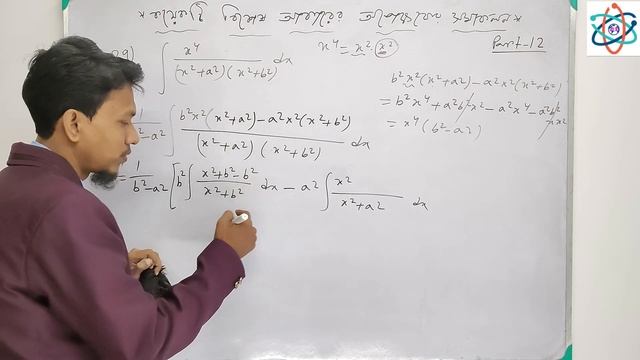 * কয়েকটি বিশেষ আকারের অপেক্ষকের সমাকলন *
Part-12
∫ x⁴/((x²+a²)(x²+b²)) dx
x⁴ = x² · x²
b²x²(x²+a²) - a²x²(x²+b²)
= b²x⁴ + a²b²x² - a²x⁴ - a²b²x²
= x⁴(b²-a²)
∫ (b²x²(x²+a²) - a²x²(x²+b²))/((x²+a²)(x²+b²)) dx
= 1/(b²-a²) [b² ∫ (x²+b²-b²)/(x²+b²) dx - a² ∫ x²/(x²+a²) dx